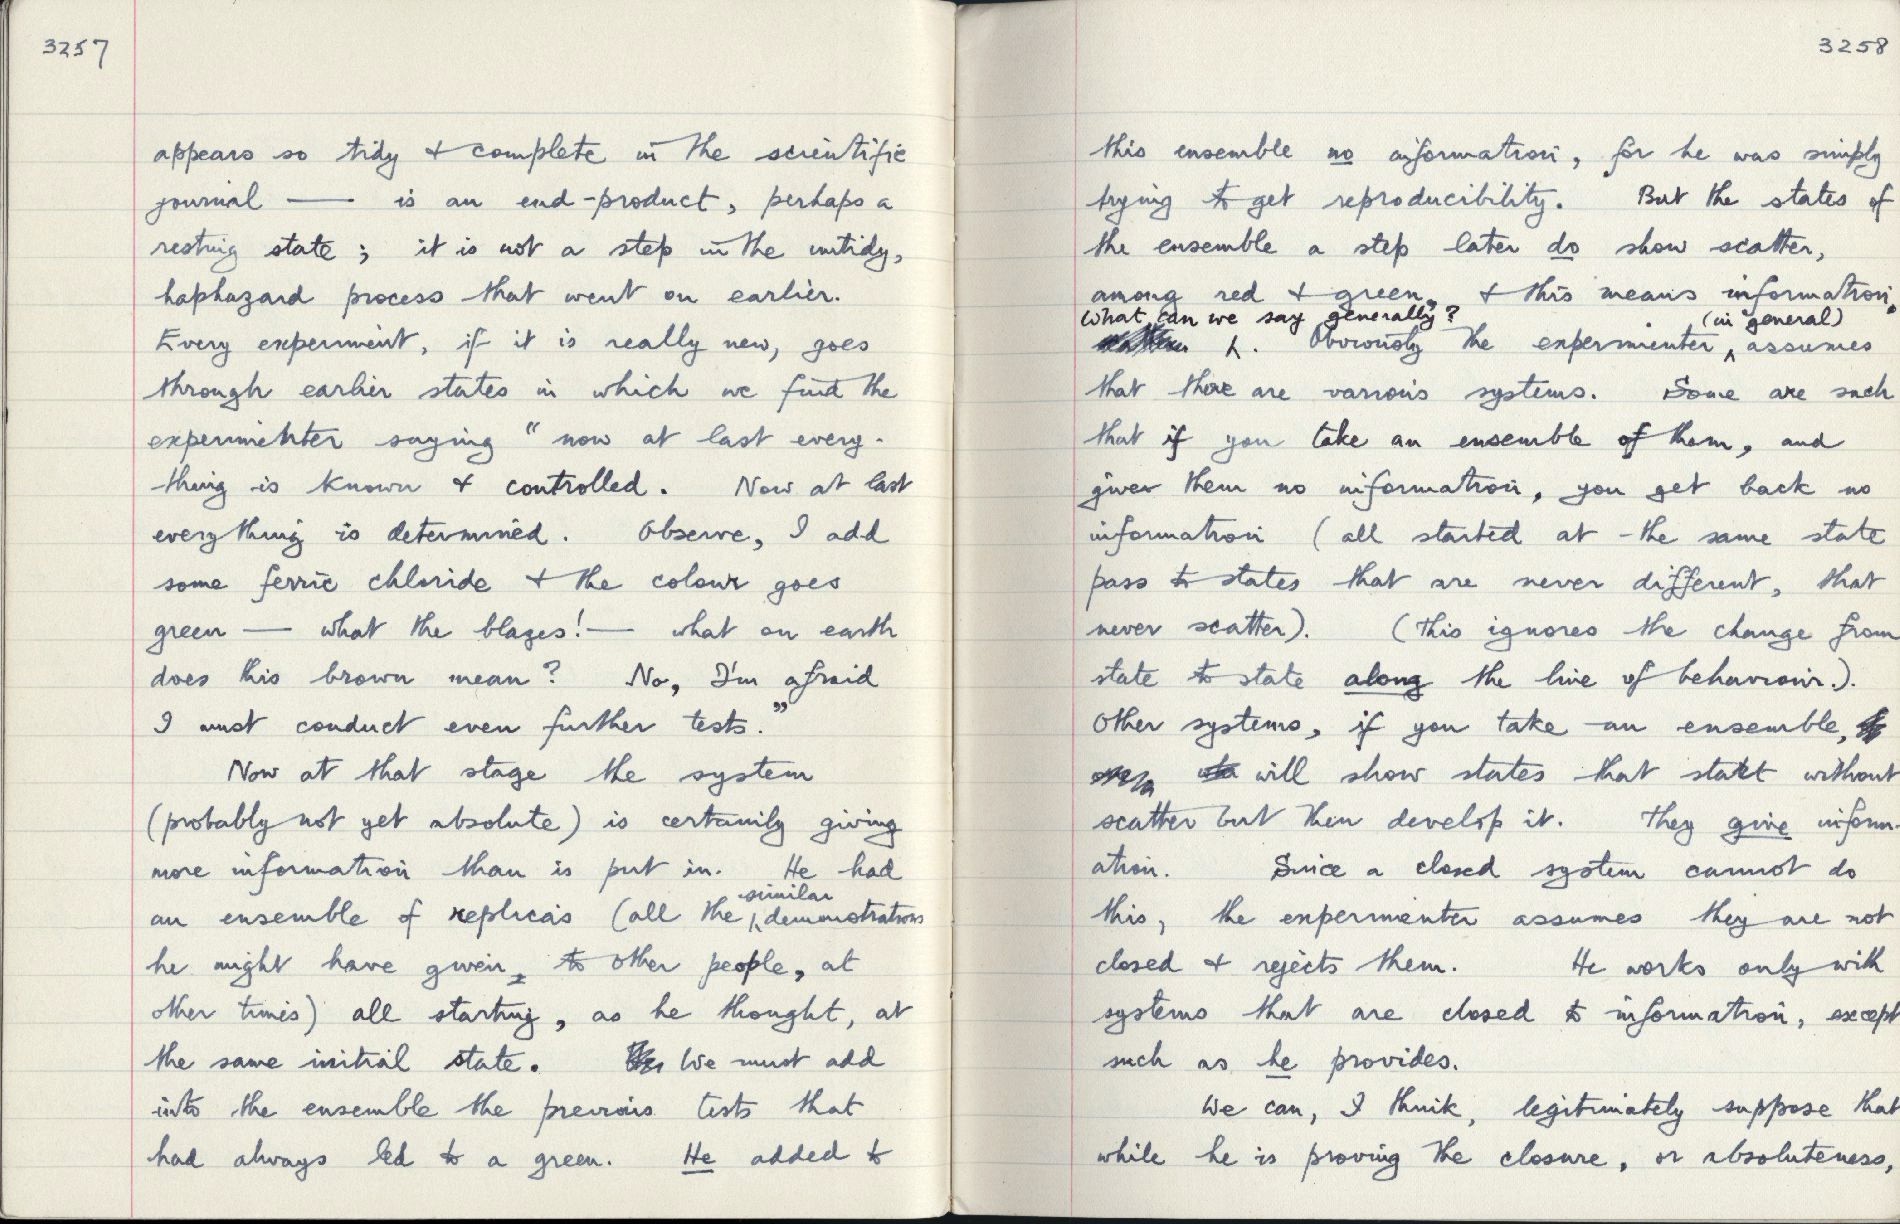 3257
appears so tidy & complete in the scientific
journal — is an end-product, perhaps a
resting state; it is not a step in the untidy,
haphazard process that went on earlier.
Every experiment, if it is really new, goes
through earlier states in which we find the
experimenter saying "now at last every-
thing is known & controlled. Now at last
everything is determined. Observe, I add
some ferric chloride & the colour goes
green — what the blazes! — what on earth
does this brown mean? No, I'm afraid
I must conduct even further tests."
Now at that stage the system
(probably not yet absolute) is certainly giving
more information than is put in. He had
similar
an ensemble of replicas (all the demonstrations
he might have given, to other people, at
other times) all starting, as he thought, at
the same initial state. We must add
into the ensemble the previous tests that
had always led to a green. He added to
3258
this ensemble no information, for he was simply
trying to get reproducibility. But the states of
the ensemble a step later do show scatter,
among red & green, & this means information.
What can we say generally? (in general)
Obviously the experimenter assumes
that there are various systems. Some are such
that if you take an ensemble of them, and
given them no information, you get back no
information (all started at the same state
pass to states that are never different, that
never scatter). (This ignores the change from
state to state along the line of behaviour.).
Other systems, if you take an ensemble,
will show states that start without
scatter but then develop it. They give inform-
ation. Since a closed system cannot do
this, the experimenter assumes they are not
closed & rejects them. He works only with
systems that are closed to information, except
such as he provides.
We can, I think, legitimately suppose that
while he is proving the closure, or absoluteness,